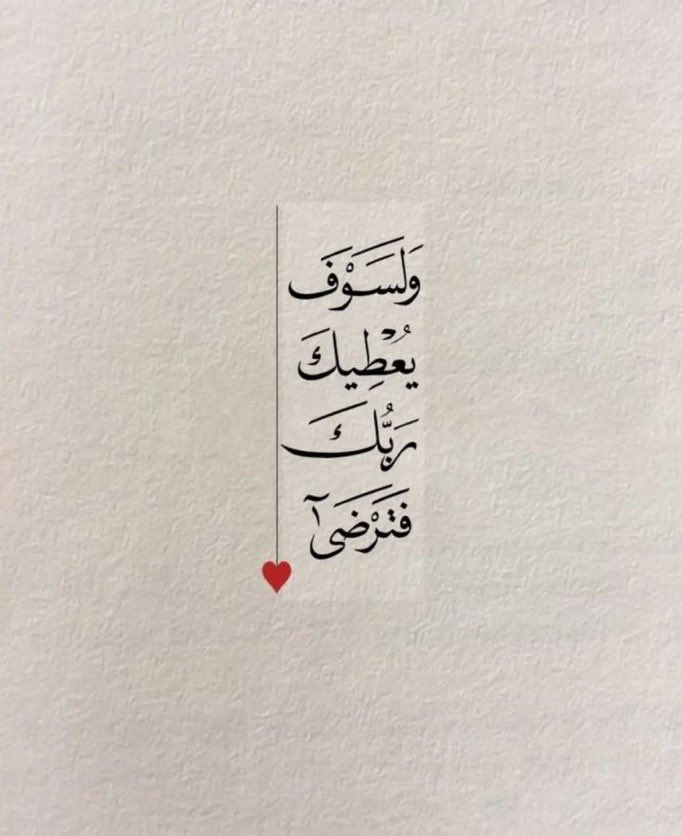 وَلَسَوْفَ
يُعْطِيكَ
رَبُّكَ
فَتَرْضَىٰٓ